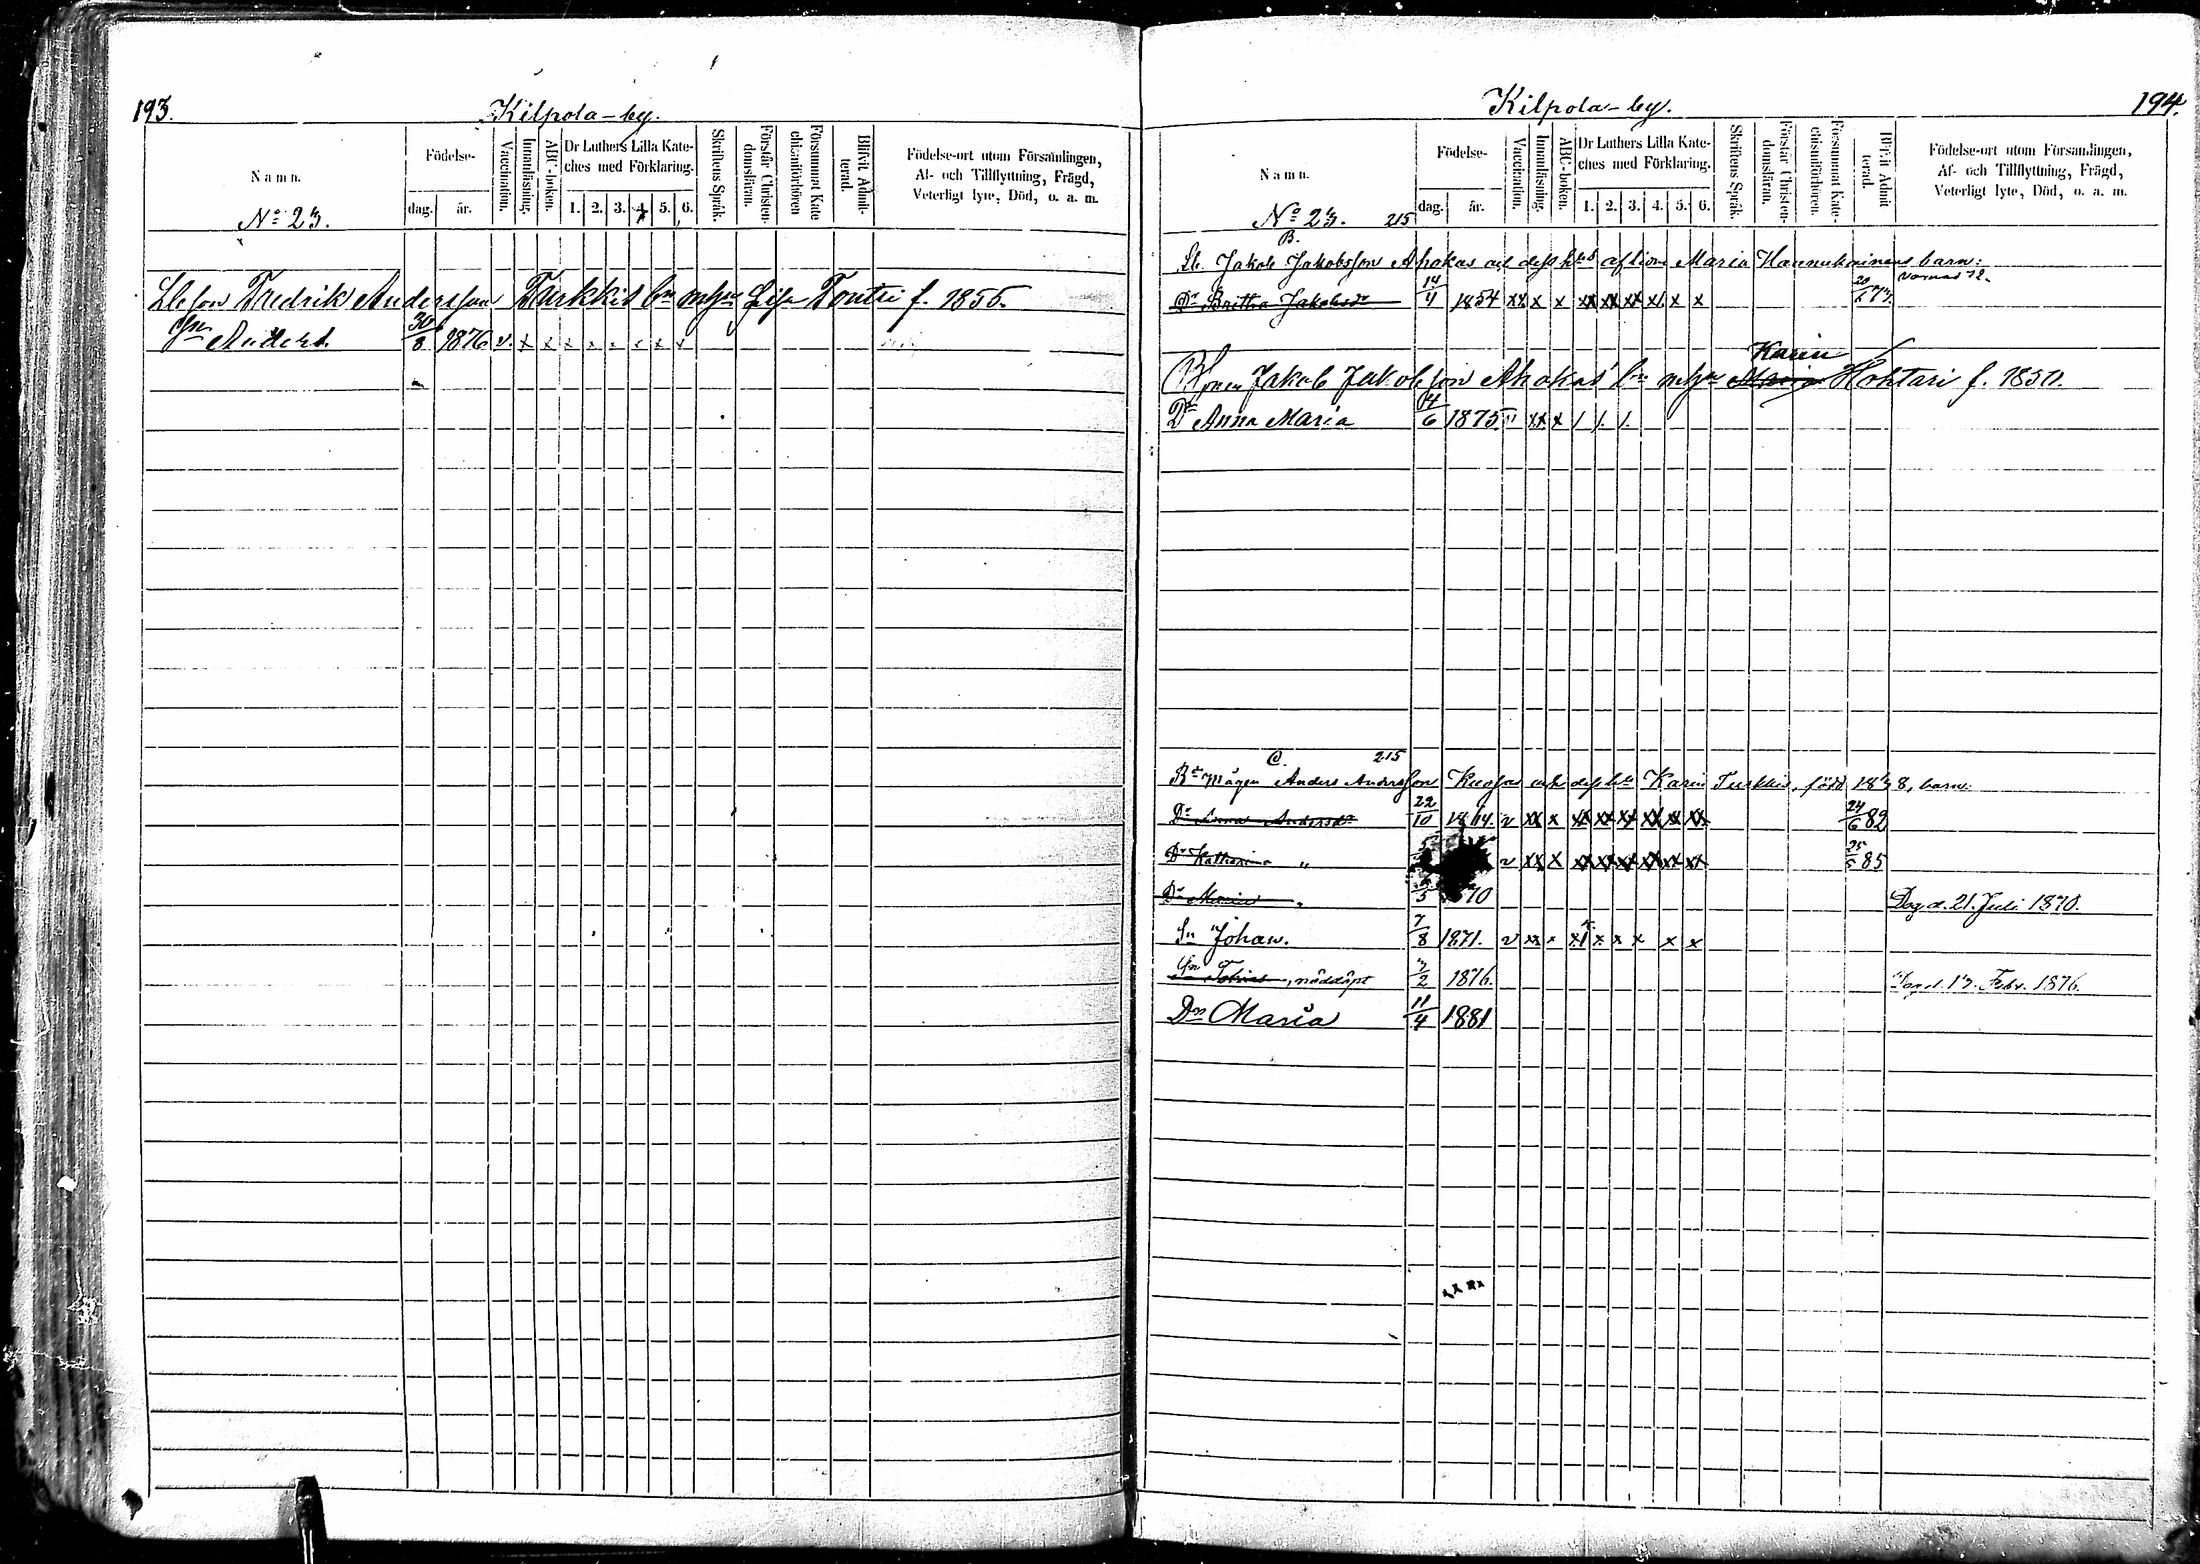 193.
Kilpola-by.
Namn.
No 23.
Födelse-
dag. år.
Vaccination.
Innanläsning.
ABC-boken.
Dr Luthers Lilla Kate-
ches med Förklaring.
1. 2. 3. 4. 5. 6.
Skriftens Språk.
Förstår Christen-
domsläran.
Försummat Kate-
chismiförhören
Blifvit Admit-
terad.
Födelse-ort utom Församlingen,
Af- och Tillflyttning, Frägd,
Veterligt lyte, Död, o. a. m.
Fredrik Andersson Turkkis bn mhn Lisa Tontri f. 1855.
Sn Anders 30/8 1876 v. x x x x x x x x
Kilpola-by.
194.
Namn.
No 23. 215
B.
Födelse-
dag. år.
Vaccination.
Innanläsning.
ABC-boken.
Dr Luthers Lilla Kate-
ches med Förklaring.
1. 2. 3. 4. 5. 6.
Skriftens Språk.
Förstår Christen-
domsläran.
Försummat Kate-
chismiförhören.
Blifvit Admit-
terad.
Födelse-ort utom Församlingen,
Af- och Tillflyttning, Frägd,
Veterligt lyte, Död, o. a. m.
Jakob Jakobsson Ahokas och dess Maria Hannukainens barn:
Dr Brittha Jakobsdr 14/4 1854 xx x x xx xx xx x x x 20/6 73.
Karin
Jakob Jakobsson Ahokas bn mhn Maria Hohtari f. 1850.
Dr Anna Maria 14/6 1875. v xx x / /. /.
C. 215
Bdns mågen Anders Andersson Kuosa och dess h:u Karin Turkkis, född 1838, barn:
Dr Anna Andersdr 22/10 1864. v xx x xx xx xx xx xx xx 24/6 82
Dr Katharina " v xx x xx xx xx xx xx xx 25/5 85
Dr Maria " 5 70 Dog d. 21. Juli 1870.
Sn Johan. 7/8 1871. v xx x x x x x x x
Sn Tobias, nöddöpt 3/2 1876. Dog d. 13. Febr. 1876.
Dr Maria 11/4 1881